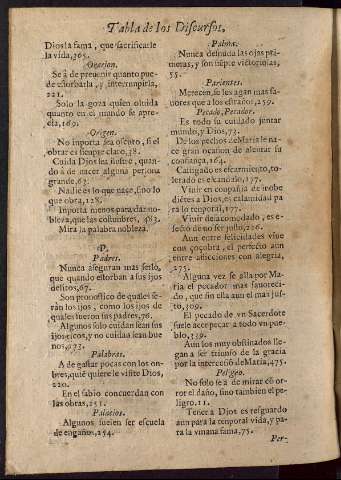 Tabla de los Discursos,
Dios la fama, que sacrificarle
la vida, 365.
Oracion.
Se à de preuenir quanto pue-
de estorbarla, y interrumpirla,
221.
Solo la goza quien oluida
quanto en el mundo se apre-
cia, 169.
Origen.
No inporta sea oscuro, si el
obrar es sienpre claro, 38.
Cuida Dios sea ilustre, quan-
do à de nacer alguna persona
grande, 63.
Nadie es lo que nace, sino lo
que obra, 128.
Inporta menos para dar no-
bleza, que las costunbres, 483.
Mira la palabra nobleza.
P.
Padres.
Nunca aseguran mas serlo,
que quando estorban a sus ijos
delitos, 67.
Son pronostico de quales se-
ràn los ijos, como los ijos de
quales fueron sus padres, 76.
Algunos solo cuidan sean sus
ijos ricos, y no cuidan sean bue
nos, 173.
Palabras.
A de gastar pocas con los on-
bres, quiē quiere le visite Dios,
220.
En el sabio concuerdan con
las obras, 251.
Palacios.
Algunos suelen ser escuela
de engaños, 254.
Palma.
Nunca desnuda las ojas pri-
meras, y son sienpre victoriosas,
55.
Parientes.
Merecen, se les agan mas fa-
uores que a los estraños, 259.
Pecado, Pecador.
Es todo su cuidado juntar
mundo, y Dios, 73.
De los pechos de Maria le na-
ce gran ocasion de alentar su
confiança, 164.
Castigado es escarmiento, to-
lerado es escandalo, 177.
Viuir en conpañia de inobe
diētes a Dios, es calamidad pa
ra lo tenporal, 177.
Viuir desacomodado, es e-
fecto de no ser justo, 226.
Aun entre felicidades viue
con çoçobra, el perfecto aun
entre aflicciones con alegria,
275.
Alguna vez se alla por Ma-
ria el pecador mas fauoreci-
do, que sin ella aun el mas jus-
to, 309.
El pecado de vn Sacerdote
suele acer pecar a todo vn pue-
blo, 339.
Aun los muy obstinados lle-
gan a ser triunfo de la gracia
por la intercesiō de Maria, 475.
Peligro.
No solo se à de mirar cō or-
ror el daño, sino tanbien el pe-
ligro, 11.
Tener a Dios es resguardo
aun para la tenporal vida, y pa-
ra la vmana fama, 75.
Per-